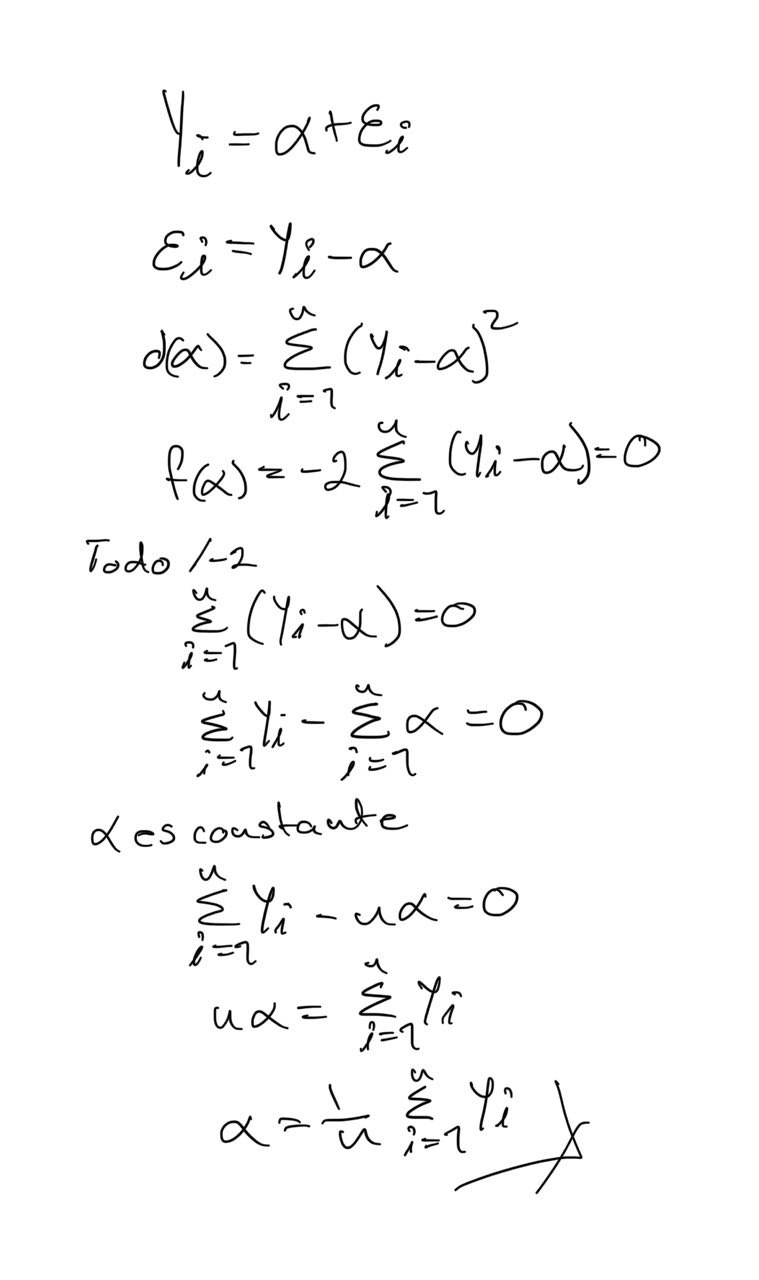 Yᵢ = α + εᵢ
εᵢ = Yᵢ - α
d(α) = ∑ᵢ₌₁ⁿ (Yᵢ - α)²
f(α) = -2 ∑ᵢ₌₁ⁿ (Yᵢ - α) = 0
Todo /-2
∑ᵢ₌₁ⁿ (Yᵢ - α) = 0
∑ᵢ₌₁ⁿ Yᵢ - ∑ᵢ₌₁ⁿ α = 0
α es constante
∑ᵢ₌₁ⁿ Yᵢ - nα = 0
nα = ∑ᵢ₌₁ⁿ Yᵢ
α = 1/n ∑ᵢ₌₁ⁿ Yᵢ